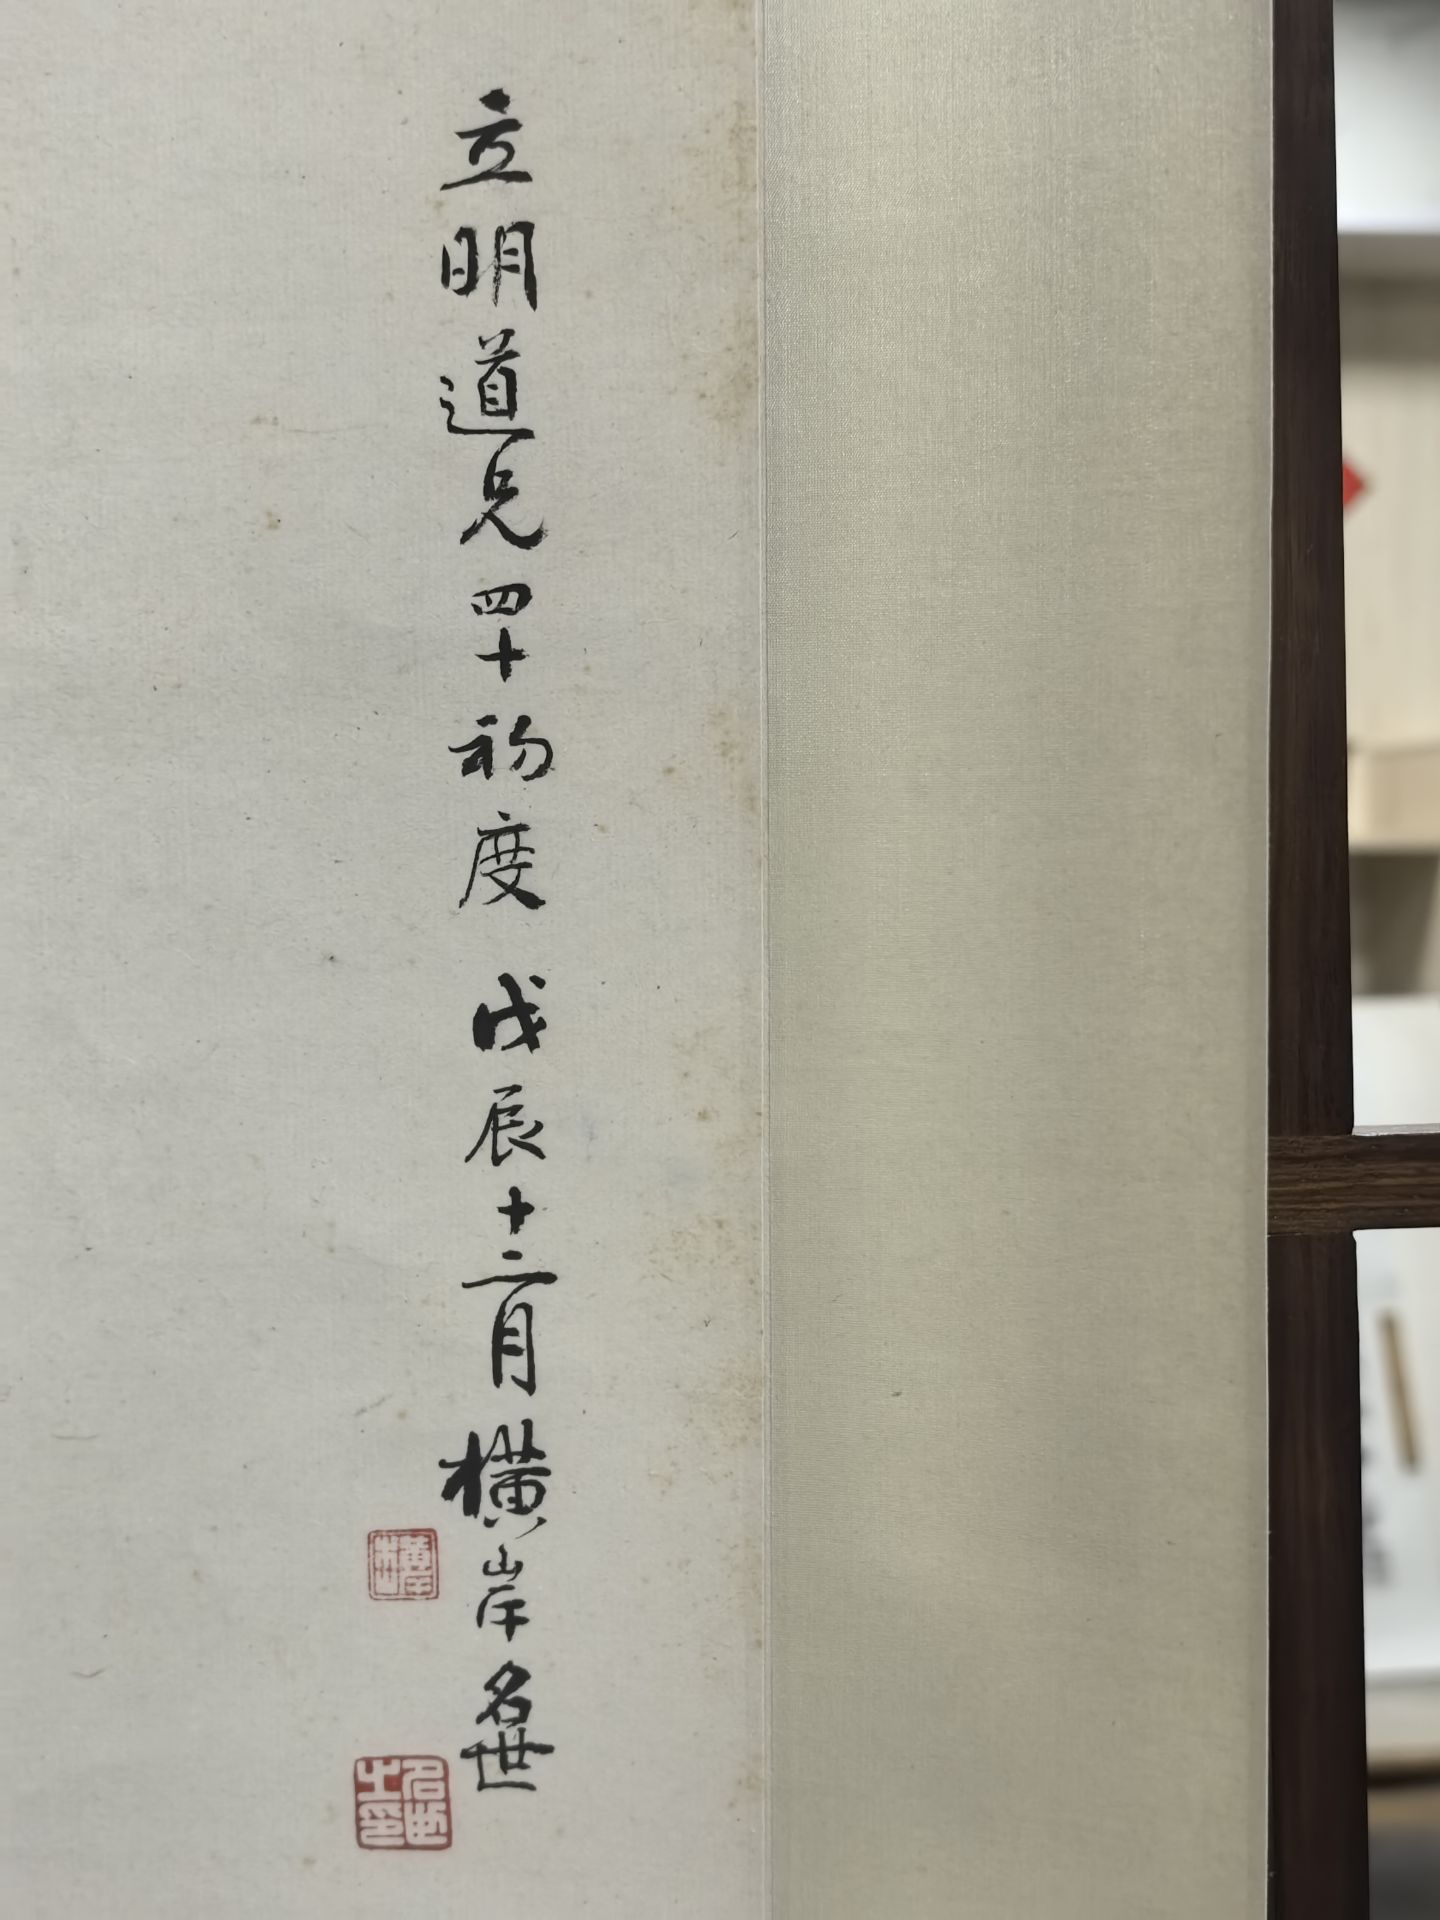 立明道兄四十初度 戊辰十二月橫岸名世
橫岸
名世之印